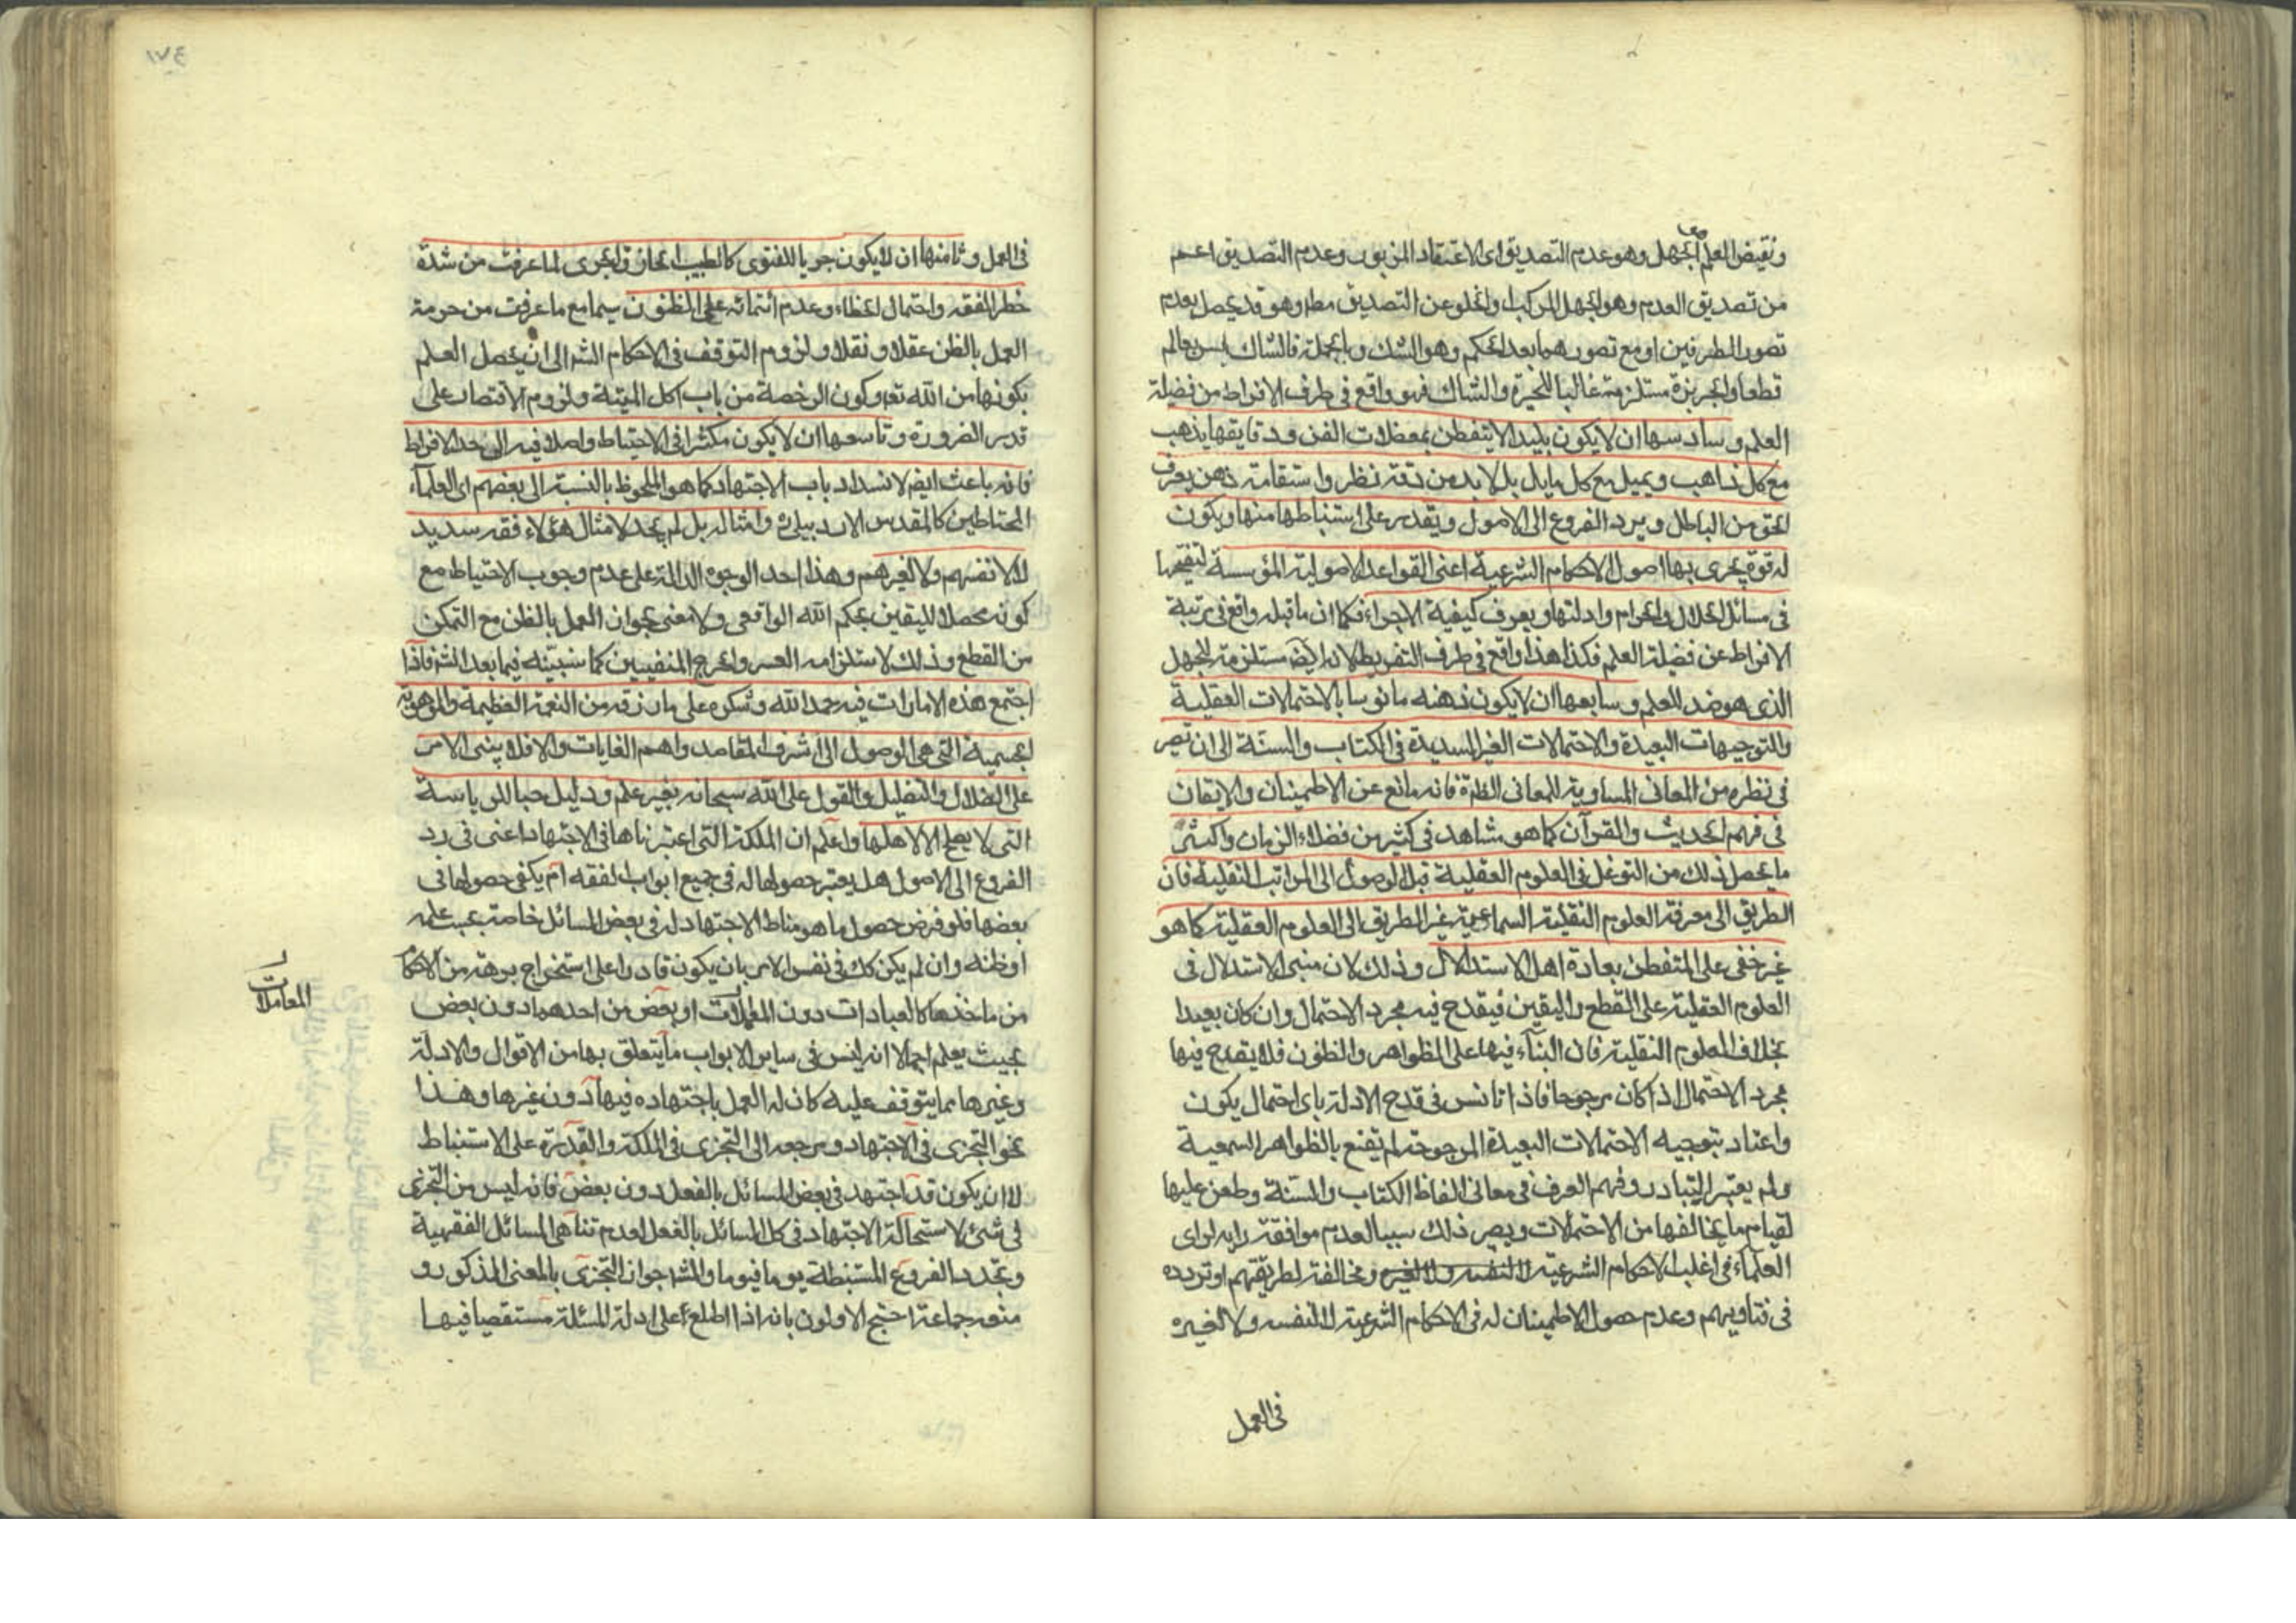 ونقيض العلم الجهل وهو عدم التصديق اى الاعتقاد المزبور وعدم التصديق اعم
معا
من تصديق العدم وهو الجهل المركب والخلو عن التصديق مطا وهو قد يحصل بعدم
تصور الطرفين او مع تصورهما بعد الحكم وهو الشك وبالجملة فالشاك ليس بعالم
قطعا والجربزة مستلزمة غالبا للحيرة والشاك فهو واقع فى طرف الافراط من فضيلة
العلم وسادسها ان لا يكون بليدا لا يتفطن بمعضلات الفن ودقايقها يذهب
مع كل ذاهب ويميل مع كل مايل بل لابد من دقة نظر واستقامة ذهن يعرف
الحق من الباطل ويرد الفروع الى الاصول ويقدر على استنباطها منها ويكون
له قوة يجرى بها اصول الاحكام الشرعية اعنى القواعد الاصولية المؤسسة
فى مسائل الحلال والحرام وادلتها ويعرف كيفية الاجراء فكما ان ما قبله واقع فى رتبة
الافراط عن فضيلة العلم فكذا هذا واقع فى طرف التفريط لانه ايضا مستلزمة للجهل
الذى هو ضد للعلم وسابعها ان لا يكون ذهنه مانوسا بالاحتمالات العقلية
والتوجيهات البعيدة والاحتمالات الغير السديدة فى الكتاب والسنة الى ان تصير
فى نظره من المعانى المساوية للمعانى الظاهرة فانه مانع عن الاطمينان والايقان
فى فهم الحديث والقرآن كما هو مشاهد فى كثير من فضلاء الزمان واكثر
ما يحصل ذلك من التوغل فى العلوم العقلية قبل الوصول الى المراتب النقلية فان
الطريق الى معرفة العلوم النقلية السماعية غير الطريق الى العلوم العقلية كما هو
غير خفى على المتفطن بعادة اهل الاستدلال وذلك لان مبنى الاستدلال فى
العلوم العقلية على القطع واليقين فيقدح فيه مجرد الاحتمال وان كان بعيدا
بخلاف العلوم النقلية فان البناء فيها على الظواهر والظنون فلا يقدح فيها
مجرد الاحتمال اذا كان مرجوحا فاذا تانس فى قدح الادلة باى احتمال يكون
واعتاد بتوجيه الاحتمالات البعيدة المرجوحة لم تقنع بالظواهر السمعية
ولم يعتبر التبادر وفهم العرف فى معانى الفاظ الكتاب والسنة وطعن عليها
لقيام ما يخالفها من الاحتمالات ويصير ذلك سببا لعدم موافقة رايه لراى
العلماء فى اغلب الاحكام الشرعية لا لنفسه ولا لغيره ومخالفة لطريقتهم او تردده
فى فتاويهم وعدم حصول الاطمينان له فى الاحكام الشرعية لا لنفسه ولا لغيره
فى العمل
١٧٤
فى العمل وثامنها ان لا يكون جريا للفتوى كالطبيب الحاذق الجرى لما عرفت من شدة
خطر الفقه واحتمال الخطاء وعدم ائتمانه على المظنون سيما مع ما عرفت من حرمة
العمل بالظن عقلا ونقلا ولزوم التوقف فى الاحكام الشر الى ان يحصل العلم
بكونها من الله تعا وكون الرخصة من باب اكل الميتة ولزوم الاقتصار على
قدر الضرورة وتاسعها ان لا يكون مكثرا فى الاحتياط واصلا فيه الى حد الافراط
فانه باعث ايضا لانسداد باب الاجتهاد كما هو الملحوظ بالنسبة الى بعضهم اى العلماء
المحتاطين كالمقدس الاردبيلى وامثاله بل لم يجد لامثال هؤلاء فقه سديد
لا لانفسهم ولا لغيرهم وهذا احد الوجوه الدالة على عدم وجوب الاحتياط مع
كونه محصلا لليقين بحكم الله الواقعى ولا معنى بجواز العمل بالظن مع التمكن
من القطع وذلك لاستلزامه العسر والحرج المنفيين كما سنبينه فيما بعد انشاء فاذا
اجتمع هذه الامارات فيه حمد الله وشكره على ما رزقه من النعمة العظيمة والموهبة
الجسيمة التى هى الوصول الى اشرف المقاصد واهم الغايات والا فلا يبنى الامر
على الضلال والتضليل والقول على الله سبحانه بغير علم ودليل حبا للرياسة
التى لا يصلح الا لاهلها واعلم ان الملكة التى اعتبرناها فى الاجتهاد اعنى فى رد
الفروع الى الاصول هل يعتبر حصولها له فى جميع ابواب الفقه ام يكفى حصولها فى
بعضها فلو فرض حصول ما هو مناط الاجتهاد له فى بعض المسائل خاصة بحسب علمه
او ظنه وان لم يكن كك فى نفس الامر بان يكون قادرا على استخراج برهة من الاحكام
من ماخذها كالعبادات دون المعاملات او بعض من احدهما دون بعض
المعاملات
بحيث يعلم اجمالا انه ليس فى ساير الابواب ما يتعلق بها من الاقوال والادلة
وغيرها مما يتوقف عليه كان له العمل باجتهاده فيها دون غيرها وهذا
نحو التجزى فى الاجتهاد ومرجعه الى التجزى فى الملكة والقدرة على الاستنباط
لا ان يكون قد اجتهد فى بعض المسائل بالفعل دون بعض فانه ليس من التجزى
فى شئ لاستحالة الاجتهاد فى كل المسائل بالفعل لعدم تناهى المسائل الفقهية
وتجدد الفروع المستنبطة يوما فيوما والمشهور جواز التجزى بالمعنى المذكور و
منعه جماعة احتج الاولون بانه اذا اطلع على ادلة المسئلة مستقصيا فيها